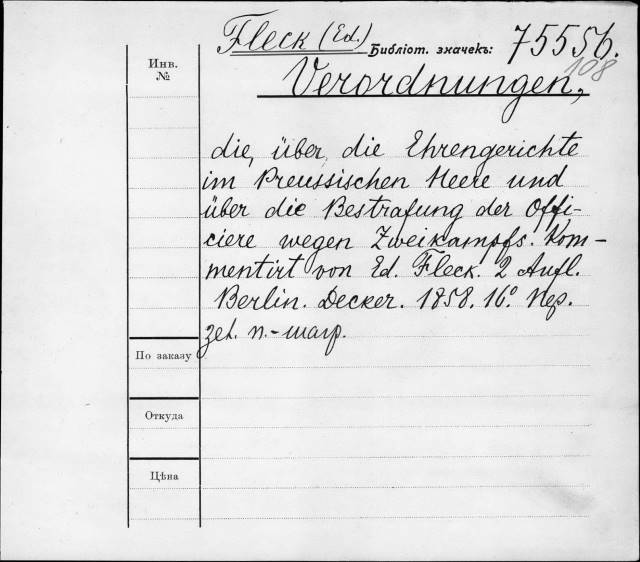 Fleck (Ed.)
Библіот. значекъ: 75556.
108
Инв.
№
Verordnungen,
die, über die Ehrengerichte
im Preussischen Heere und
über die Bestrafung der Offi-
ciere wegen Zweikampfs. Kom-
mentirt von Ed. Fleck. 2 Aufl.
Berlin. Decker. 1858. 16º. Пер.
зел. п.-шагр.
По заказу
Откуда
Цѣна